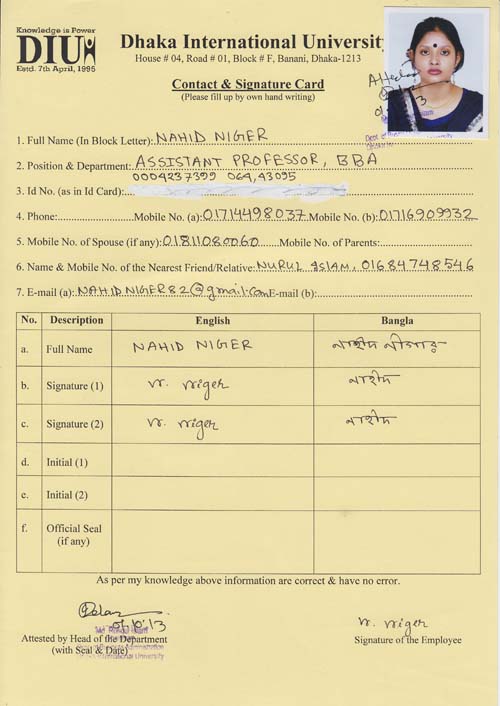 Knowledge is Power
DIU
Estd. 7th April, 1995
Dhaka International University
House # 04, Road # 01, Block # F, Banani, Dhaka-1213
Contact & Signature Card
(Please fill up by own hand writing)
1. Full Name (In Block Letter): NAHID NIGER
2. Position & Department: ASSISTANT PROFESSOR, BBA
0004237399 064,43095
3. Id No. (as in Id Card):
4. Phone: Mobile No. (a): 01714498037 Mobile No. (b): 01716909932
5. Mobile No. of Spouse (if any): 01811080060 Mobile No. of Parents:
6. Name & Mobile No. of the Nearest Friend/Relative: NURUL ISLAM, 01684748546
7. E-mail (a): NAHIDNIGER82@gmail.com E-mail (b):
No. Description English Bangla
a. Full Name NAHID NIGER নাহীদ নীগার
b. Signature (1) N. Niger নাহীদ
c. Signature (2) N. Niger নাহীদ
d. Initial (1)
e. Initial (2)
f. Official Seal
(if any)
As per my knowledge above information are correct & have no error.
N. Niger
Attested by Head of the Department Signature of the Employee
(with Seal & Date)
International University